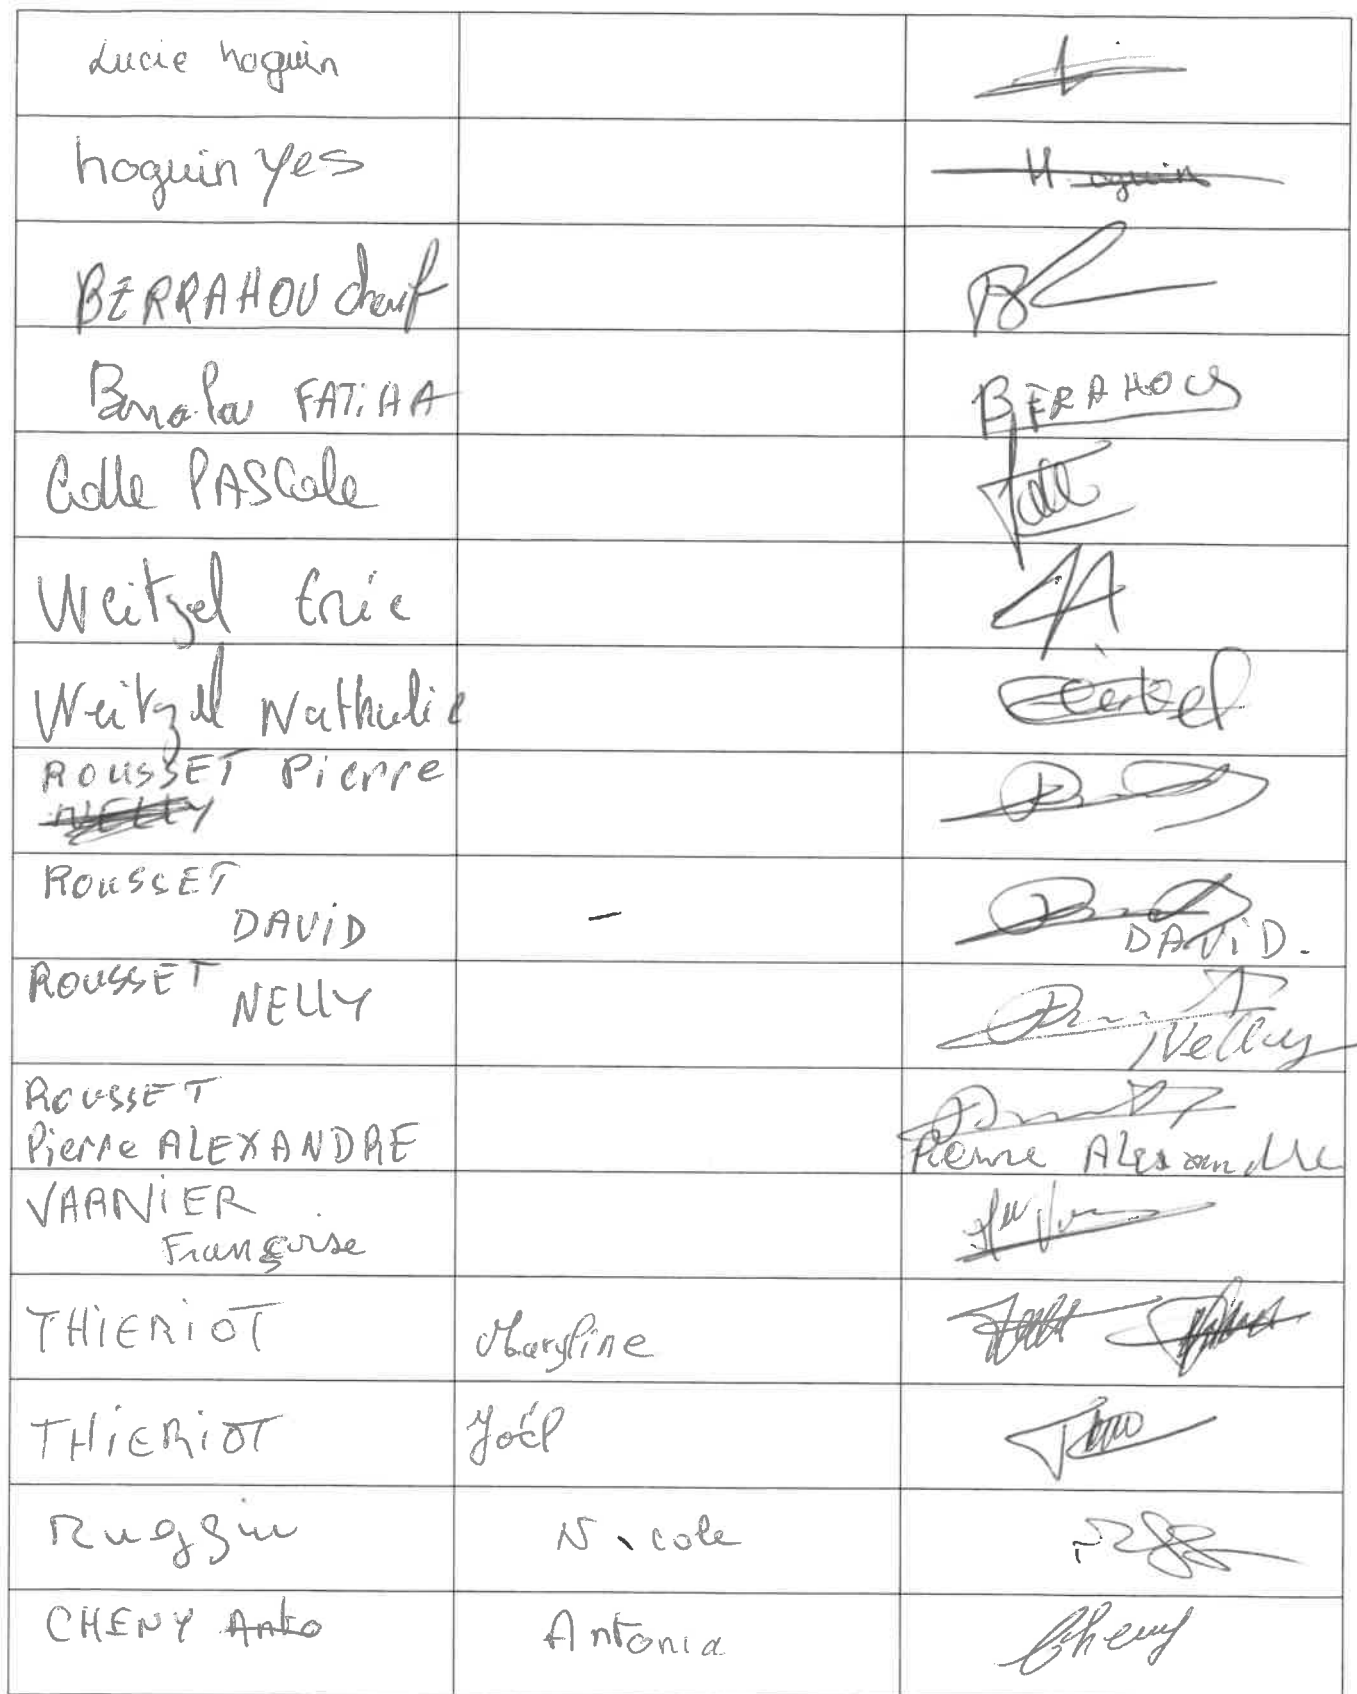 Lucie hoguin
hoguin yes H oguin
BERRAHOU cherif
FATiHA BERAHOU
Colle PAScale
Weitzel Eric
Weitzel Nathalie
ROUSSET Pierre
NELLY
ROUSSET
DAViD - DAViD.
ROUSSET NELLY Nelly
ROUSSET
Pierre ALEXANDRE Pierre Alexandre
VARNiER
Françoise
THiERiOT Maryline
THiERiOT Joël
Nicole
CHENY Anto Antonia Cheny